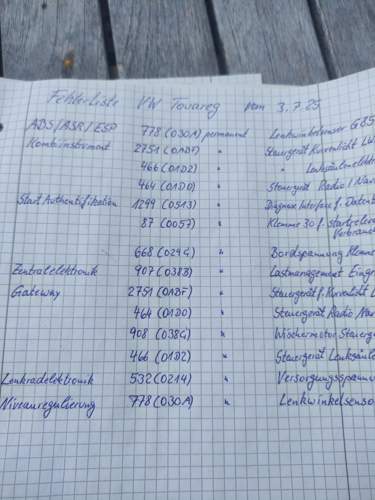 Fehlerliste VW Touareg vom 3.7.25
ABS/ASR/ESP 778 (030A) permanent Lenkwinkelsensor G85
Kombiinstrument 2751 (0ABF) " Steuergerät Kurvenlicht
466 (01D2) " " Lenksäulenelektr
464 (01D0) " Steuergerät Radio / Nav
Start Authentifikation 1299 (0513) " Diagnose Interface f. Datenb
87 (0057) " Klemme 30 f. startreleva
Verbrauch
668 (029C) " Bordspannung Klemme
Zentralelektronik 907 (038B) " Lastmanagement Eingr
Gateway 2751 (0ABF) " Steuergerät f. Kurvenlicht
464 (01D0) " Steuergerät Radio Nav
908 (038C) " Wischermotor Steuerge
466 (01D2) " Steuergerät Lenksäule
Lenkradelektronik 532 (0214) " Versorgungsspannun
Niveauregulierung 778 (030A) " Lenkwinkelsenso